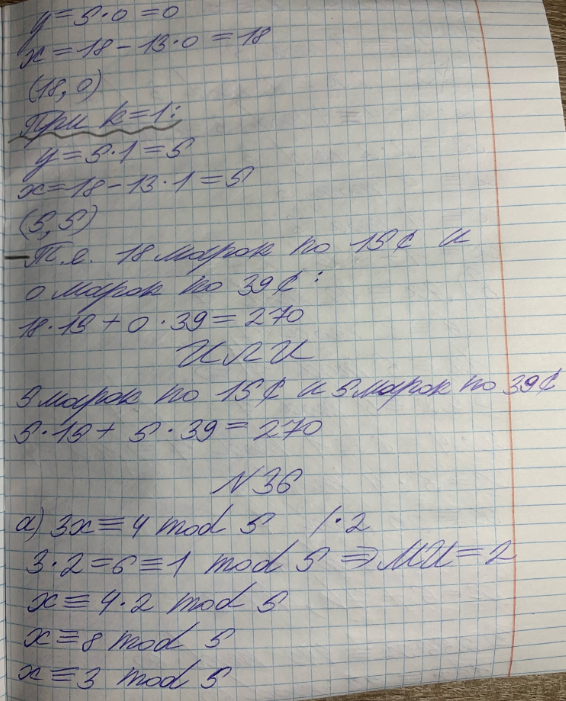 y=5·0=0
x=18-13·0=18
(18,0)
При k=1:
y=5·1=5
x=18-13·1=5
(5,5)
Т.е. 18 марок по 15¢ и
0 марок по 39¢:
18·15+0·39=270
ИЛИ
5 марок по 15¢ и 5 марок по 39¢
5·15+5·39=270
N36
а) 3x≡4 mod 5 /·2
3·2=6≡1 mod 5 ⇒ МИ=2
x≡4·2 mod 5
x≡8 mod 5
x≡3 mod 5